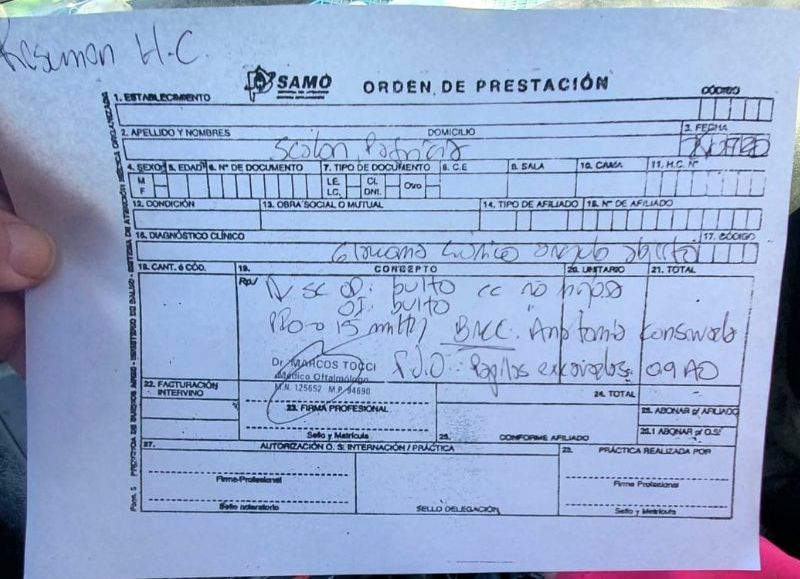 Resumen H.C.
SAMO ORDEN DE PRESTACIÓN
CÓDIGO
1. ESTABLECIMIENTO
2. APELLIDO Y NOMBRES DOMICILIO 3. FECHA
Scalon, Patricia
4. SEXO 5. EDAD 6. Nº DE DOCUMENTO 7. TIPO DE DOCUMENTO 8. C.E 9. SALA 10. CAMA 11. H.C. Nº
M LE. CI. Otro
F LC. DNI.
12. CONDICIÓN 13. OBRA SOCIAL O MUTUAL 14. TIPO DE AFILIADO 15. Nº DE AFILIADO
16. DIAGNÓSTICO CLÍNICO 17. CÓDIGO
Glaucoma crónico angulo abierto
18. CANT. ó CÓD. 19. CONCEPTO 20. UNITARIO 21. TOTAL
Rp/ AV sc OD: bulto cc no mejora
OI: bulto
15 mmHg BMC: Anatomia conservada
F.D.O: Papilas excavadas 0.9 AO
Dr. MARCOS TOCCI
Médico Oftalmólogo
M.N. 125652 M.P. 94690
22. FACTURACIÓN INTERVINO
23. FIRMA PROFESIONAL
Sello y Matrícula
24. TOTAL
25. CONFORME AFILIADO
26. ABONAR p/ AFILIADO
26.1 ABONAR p/ O.S.
27. AUTORIZACIÓN O. S. INTERNACIÓN / PRÁCTICA
28. PRÁCTICA REALIZADA POR
Firma Profesional
Sello aclaratorio
SELLO DELEGACIÓN
Firma Profesional
Sello y Matrícula
Form. 5 PROVINCIA DE BUENOS AIRES - MINISTERIO DE SALUD - SISTEMA DE ATENCIÓN MÉDICA ORGANIZADA